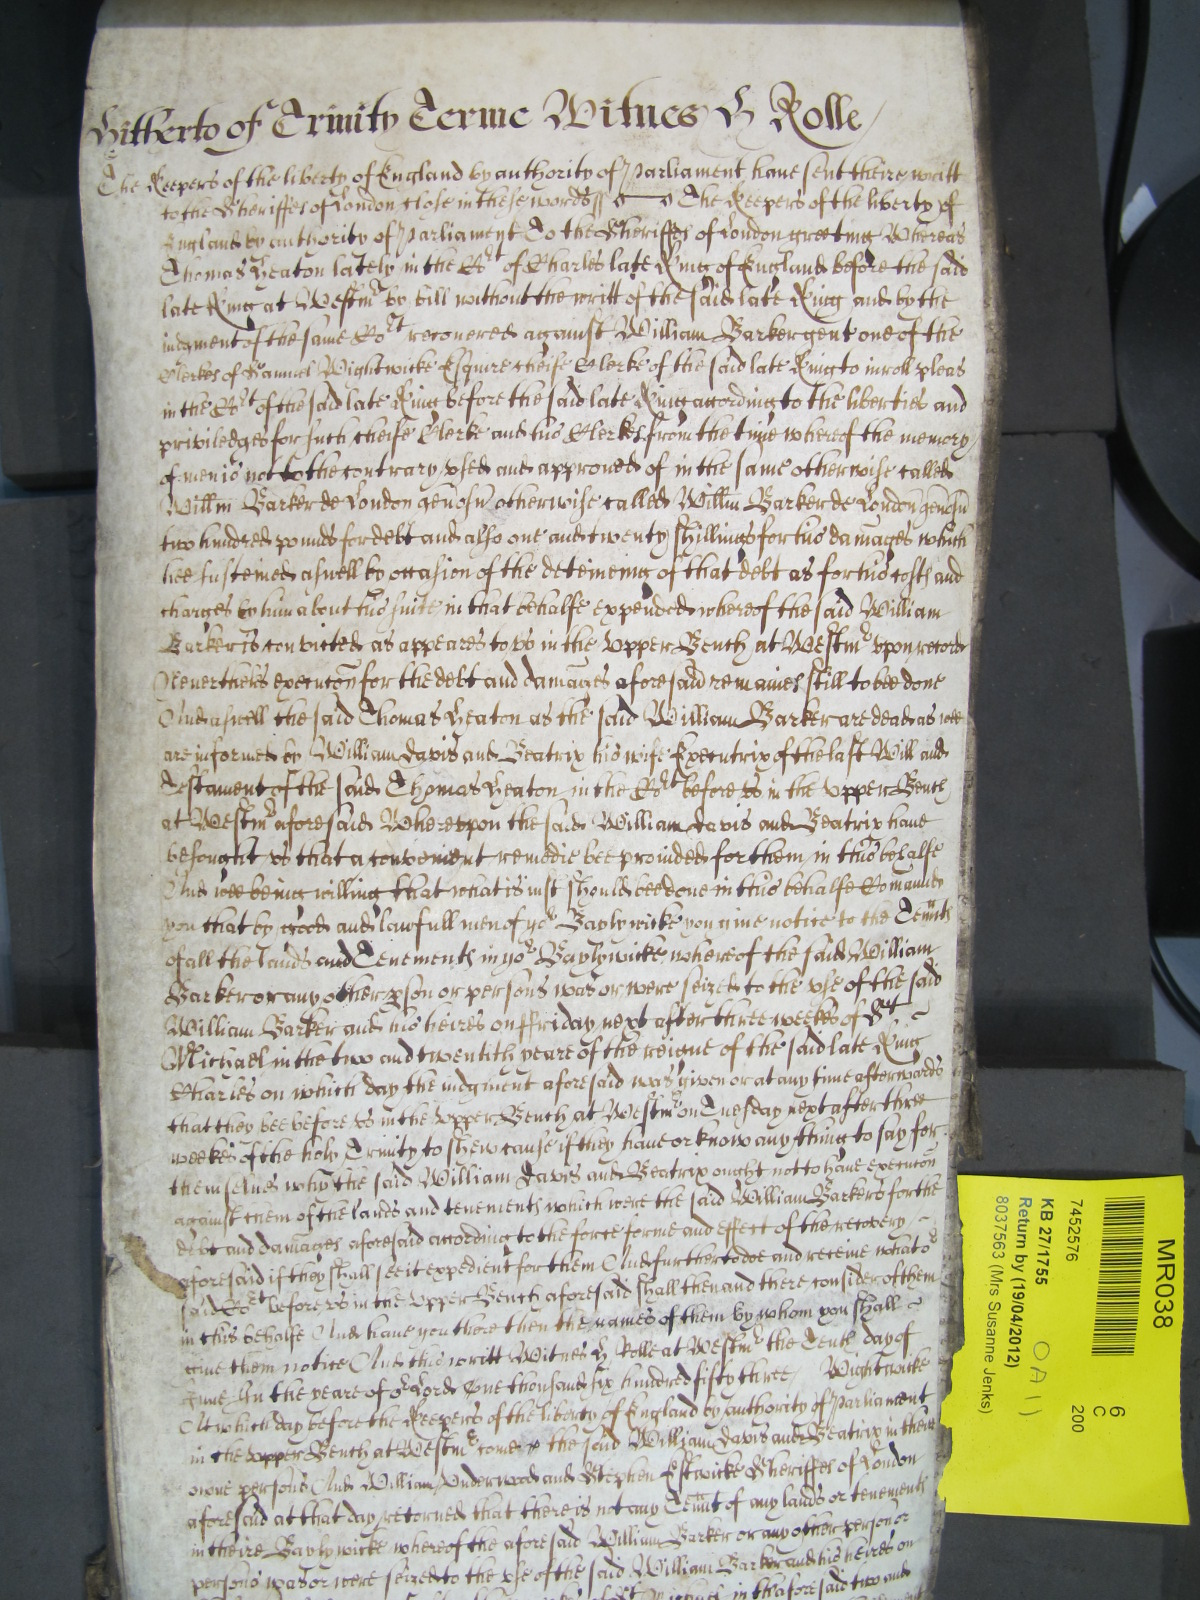 Hitherto of Trinity Terme Witnes H Rolle
The Keepers of the liberty of England by authority of Parliament have sent theire writt
to the Sheriffes of London close in these words The Keepers of the liberty of
England by authority of Parliament To the Sheriffes of London greeting Whereas
Thomas Heaton lately in the Cort of Charles late King of England before the said
late King at Westmr by bill without the writt of the said late King and by the
iudgment of the same Cort recouered against William Barker gent one of the
Clerkes of Samuel Wightwicke Esquire cheife Clerke of the said late King to inroll pleas
in the Cort of the said late King before the said late King according to the liberties and
priviledges for such cheife Clerke and his Clerkes from the time whereof the memory
of men is not to the contrary vsed and approued of in the same otherwise called
Willm Barker de London genosu otherwise called Willm Barker de London genosu
two hundred pounds for debt and also one and twenty shillings for his damages which
hee susteined aswell by occasion of the deteineing of that debt as for his costs and
charges by him about his suite in that behalfe expended whereof the said William
Barker is convicted as appeares to vs in the Vpper Bench at Westmr vpon record
Neuertheles execucon for the debt and damages aforesaid remaines still to bee done
And aswell the said Thomas Heaton as the said William Barker are dead as wee
are informed by William Davis and Beatrix his wife Executrix of the last Will and
Testament of the said Thomas Heaton in the Cort before vs in the Vpper Bench
at Westmr aforesaid Wherevpon the said William Davis and Beatrix haue
besought vs that a convenient remedie bee prouided for them in this behalfe
And wee being willing that what is iust should bee done in this behalfe Comaund
you that by good and lawfull men of yor Baylywicke you giue notice to the Tennts
of all the lands and Tenements in yor Baylywicke whereof the said William
Barker or any other pson or persons was or were seized to the vse of the said
William Barker and his heires on ffriday next after three weekes of St
Michael in the two and twentith yeare of the reigne of the said late King
Charles on which day the iudgment aforesaid was given or at any time afterwards
that they bee before vs in the Vpper Bench at Westmr on Tuesday next after three
weekes of the holy Trinity to shew cause if they haue or know any thing to say for
themselues why the said William Davis and Beatrix ought not to haue execucon
against them of the lands and tenements which were the said William Barkers for the
debt and damages aforesaid according to the force forme and effect of the recovery
aforesaid if they shall see it expedient for them And further to doe and receiue what or
said Cort before vs in the Vpper Bench aforesaid shall then and there consider of them
in this behalfe And haue you there then the names of them by whom you shall
giue them notice And this writt Witnes H Rolle at Westmr the Tenth day of
June In the yeare of or Lord One thousand six hundred fifty three Wightwicke
At which day before the Keepers of the liberty of England by authority of Parliament
in the Vpper Bench at Westmr come the said William Davis and Beatrix in theire
owne persons And William Vnderwood and Stephen Estwicke Sheriffes of London
aforesaid at that day returned that there is not any Tennt of any lands or tenements
in theire Baylywicke whereof the aforesaid William Barker or any other person or
persons was or were seized to the vse of the said William Barker and his heires on
in thaforesaid two and
MR038
6
C
200
7452576
KB 27/1755
Return by (19/04/2012)
8037563 (Mrs Susanne Jenks)